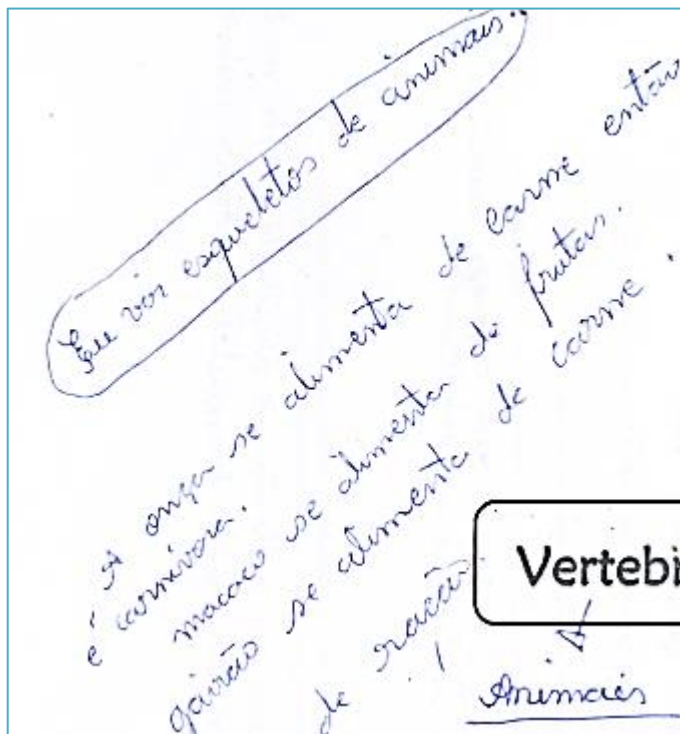 Eu vir esqueletos de animais.
A onça se alimenta de carne então
é carnívora.
macaco se alimenta de frutas.
gavião se alimenta de carne.
de ração
Vertebr
Animais